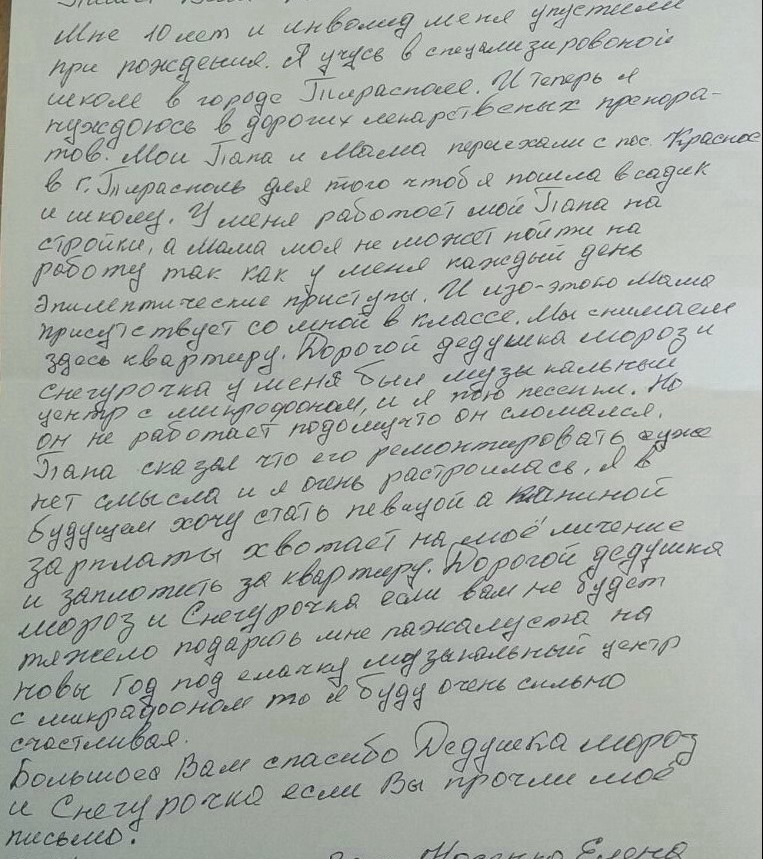 Мне 10 лет и инволид меня упустили
при рождения. Я учусь в спецализировоной
школе в городе Тирасполе. И теперь я
нуждоюсь в дорогих лекарственых препора-
тов. Мои Папа и Мама переехали с пос. Красное
в г. Тирасполь для того чтоб я пошла в садик
и школу. У меня работает мой Папа на
стройки, а Мама моя не может пойти на
работу так как у меня каждый день
эпилептические приступы. И изо-этого Мама
присутствует со мной в классе. Мы снимаем
здесь квартиру. Дорогой дедушка мороз и
снегурочка у меня был музыкальный
центр с микрофоном, и я пою песеньи. Но
он не работает подомучто он сломался.
Папа сказал что его ремонтировать уже
нет смысла и я очень растроилась. Я в
будущем хочу стать певицой а папиной
зарплаты хвотает на моё личение
и заплотить за квартиру. Дорогой дедушка
мороз и Снегурочка если вам не будет
тяжело подарить мне пажалуста на
новы Год под елачку музыкальный центр
с микрафоном то я буду очень сильно
счастливая.
Большоеа Вам спасибо Дедушка мороз
и Снегурочка если Вы прочли моё
письмо.
Елена